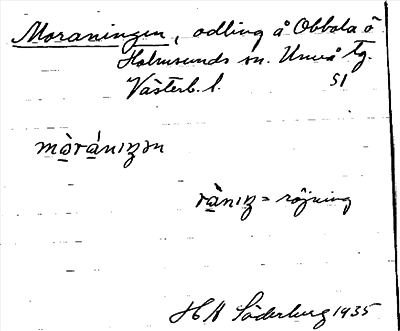 Moraningen, odling å Obbola ö
Holmsunds sn. Umeå tg.
Västerb. l. S1
mòrániŋən
ràniŋ = röjning
H A Söderberg 1935